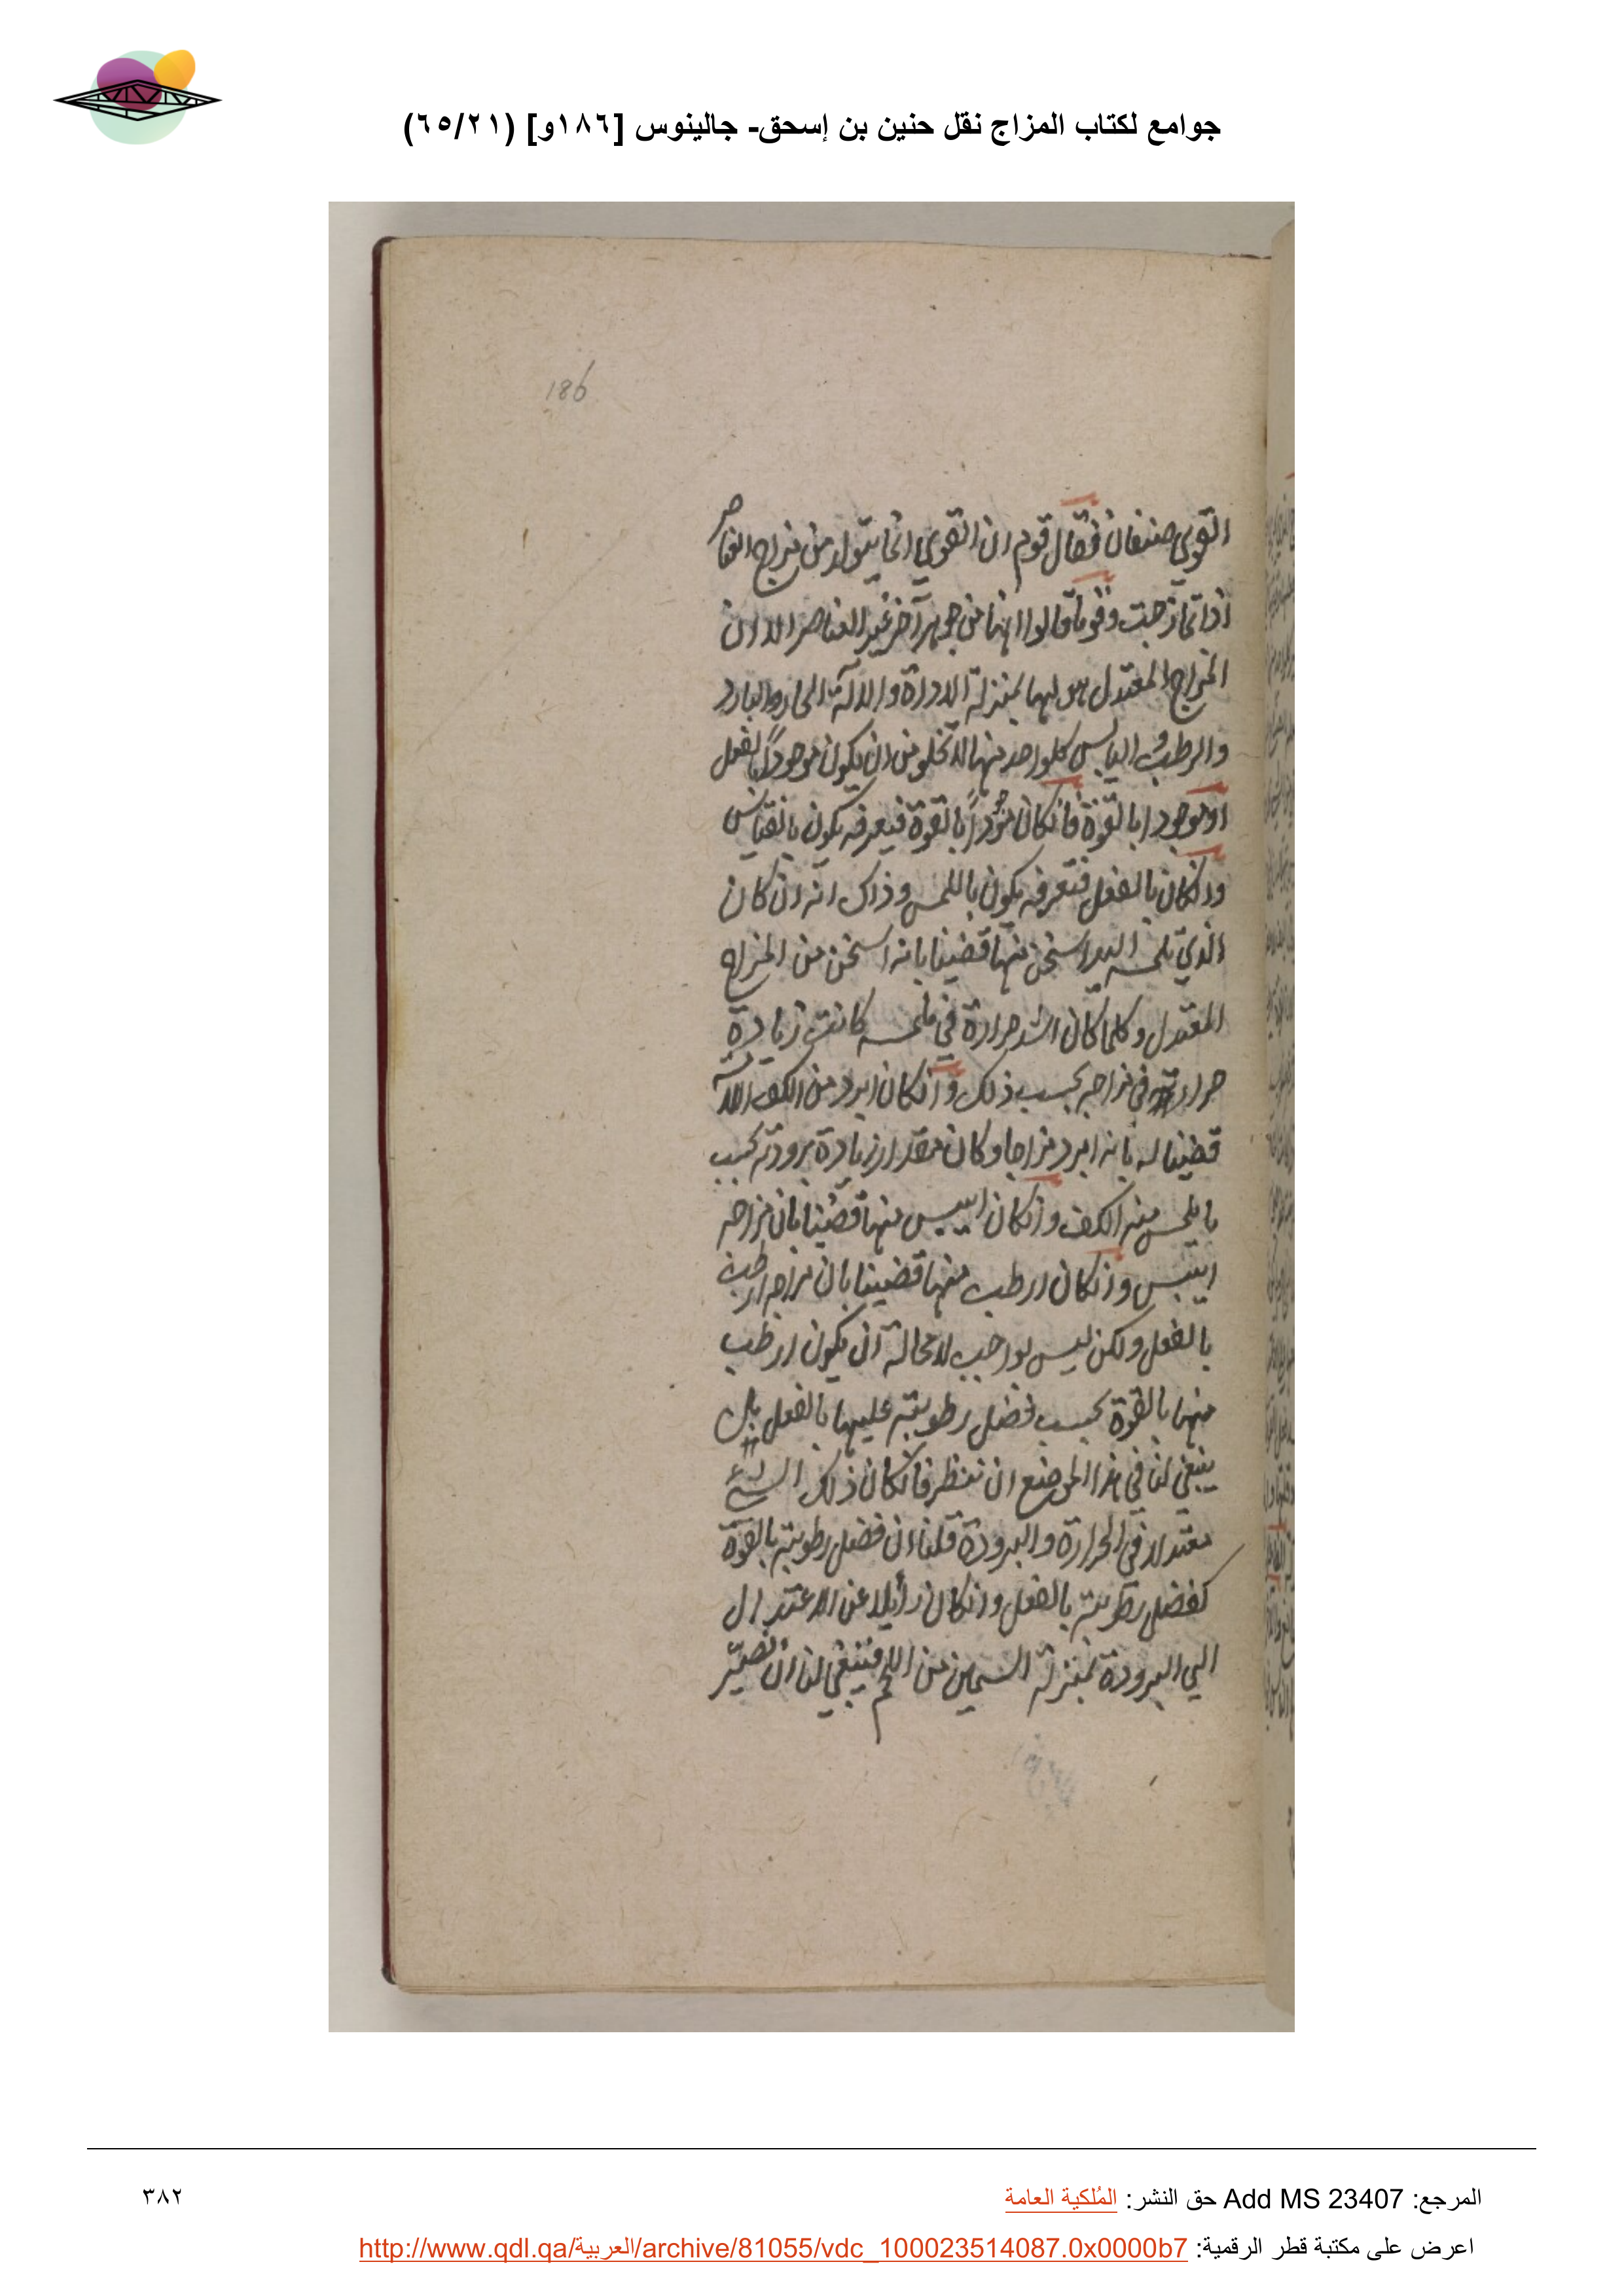 جوامع لكتاب المزاج نقل حنين بن إسحق- جالينوس [١٨٦و] (٦٥/٢١)
186
القوى صنفان فقال قوم ان القوى انما يتولد من مزاج العناصر
اذا تمازجت وقوم قالوا انها من جوهر آخر غير العناصر الا ان
المزاج المعتدل هو لها بمنزلة الاداة والالة الحار والبارد
والرطب واليابس كلواحد منها لا تخلو من ان يكون موجوداً بالفعل
او موجودا بالقوة فانكان موجوداً بالقوة فتعرفه يكون بالقياس
وانكان بالفعل فتعرفه يكون باللمس وذاك انه ان كان
الذي تلمسه اليد اسخن منها قضينا بانه اسخن من المزاج
المعتدل وكلما كان اشد حرارة في ملمسه كانت زيادة
حرارته في مزاجه بحسب ذلك وانكان ابرد من الكف اللامسة
قضينا له بانه ابرد مزاجا وكان مقدار زيادة برودته بحسب
ما يلمس منه الكف وانكان ايبس منها قضينا بان مزاجه
ايبس وانكان ارطب منها قضينا بان مزاجه ارطب
بالفعل ولكن ليس بواجب لا محالة ان يكون ارطب
منها بالقوة بحسب فضل رطوبته عليها بالفعل بل
ينبغي لنا في هذا الموضع ان ننظر فانكان ذلك الشيء
معتدلا في الحرارة والبرودة قلنا ان فضل رطوبته بالقوة
كفضل رطوبته بالفعل وانكان زايلا عن الاعتدال
الي البرودة بمنزلة السمين من اللحم فينبغي لنا ان نصير
المرجع: Add MS 23407 حق النشر: المُلكية العامة
٣٨٢
اعرض على مكتبة قطر الرقمية: http://www.qdl.qa/العربية/archive/81055/vdc_100023514087.0x0000b7